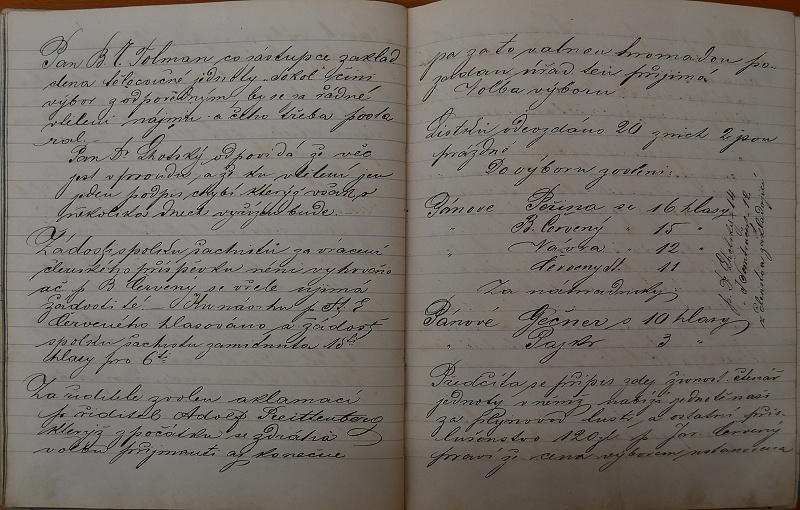 Pan B. V. Tolman co zástupce zaklad
dena tělocvičné jednoty „Sokol" činí
výbor zodpovědným, by se o řádné
vtělení nájmu a čeho třeba posta
ral.
Pan Dr. Lhotský odpovídá že věc
jest v proudu, a že ku vtělení jen
jeden podpis chybí kterýž však s
několika dnech vyřízen bude.
Žádosti spolku šachistů za vrácení
členského příspěvku není vyhověno
ač p. B Červený se vřele ujímá
žádosti té. – Ku návrhu p.
Červeného hlasováno a žádost
spolku šachistů zamítnuta 15ti
hlasy pro 6ti
Za ředitele zvolen aklamací
p. ředitel Adolf Reittenberg
kterýž z počátku se zdráhá
volbu přijmouti až konečně
pa za to valnou hromadou po
podán úřad ten přijímá
Volba výboru.
Lístků odevzdáno 20 z nich 2 jsou
prázdné
Do výboru zvoleni:
Pánové Pošina se 16 hlasy
" B. Červený " 15 "
" Vávra " 12 "
" Červený 11
Za náhradníky
Pánové Gečner s 10 hlasy
" Pajkr 3 "
Předčítá se přípis zdej. živnost. čtenář
jednoty v němž nabízí jednotě naší
za plynovod lustr a ostatní pří
lušenstvo 120 zl p. Jar. Červený
praví že cena výborem ustanovena